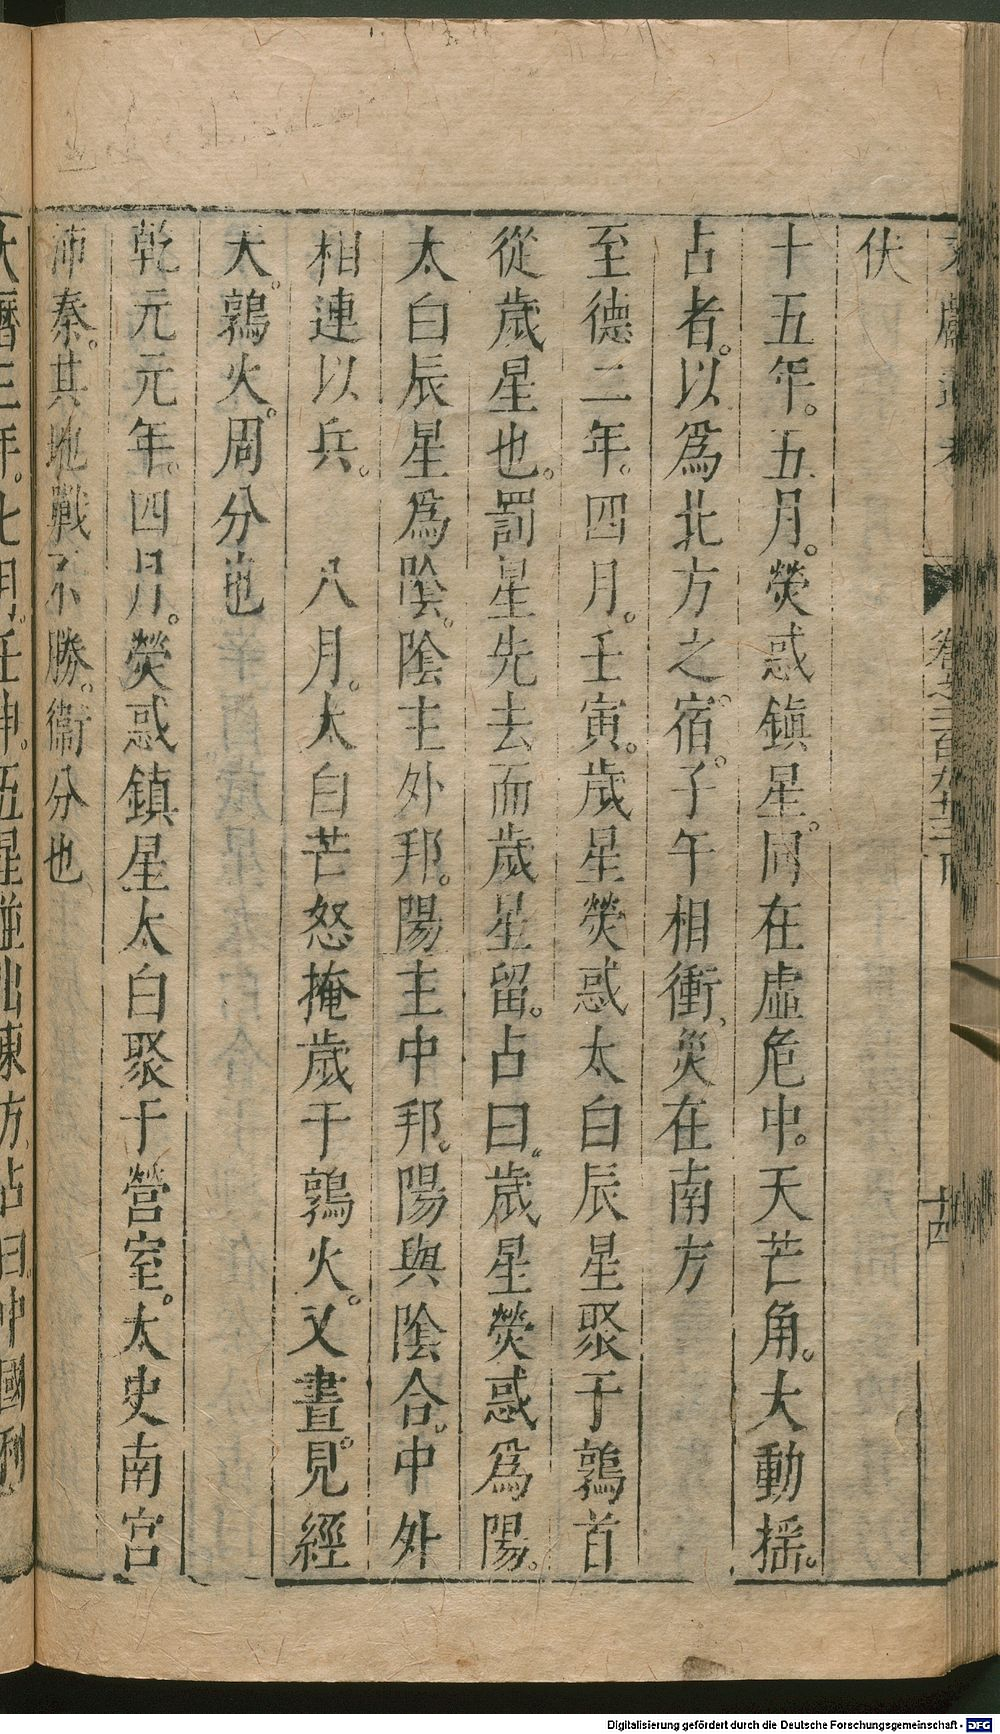 文獻通考 卷之二百九十三下 十四
伏
十五年。五月。熒惑鎮星。同在虛危中。天芒角。大動搖。
占者。以為北方之宿。子午相衝、災在南方
至德二年。四月。壬寅。歲星熒惑太白辰星聚于鶉首
從歲星也。罰星先去而歲星留。占曰。歲星熒惑為陽。
太白辰星為陰。陰主外邦。陽主中邦。陽與陰合。中外
相連以兵。 八月。太白芒怒掩歲于鶉火。又晝。見經
天。鶉火。周分也
乾元元年。四月。熒惑鎮星太白聚于營室。太史南宮
沛奏。其地戰不勝。衞分也
大曆三年。七月。壬申。五星並出東方占曰。中國利
Digitalisierung gefördert durch die Deutsche Forschungsgemeinschaft - DFG